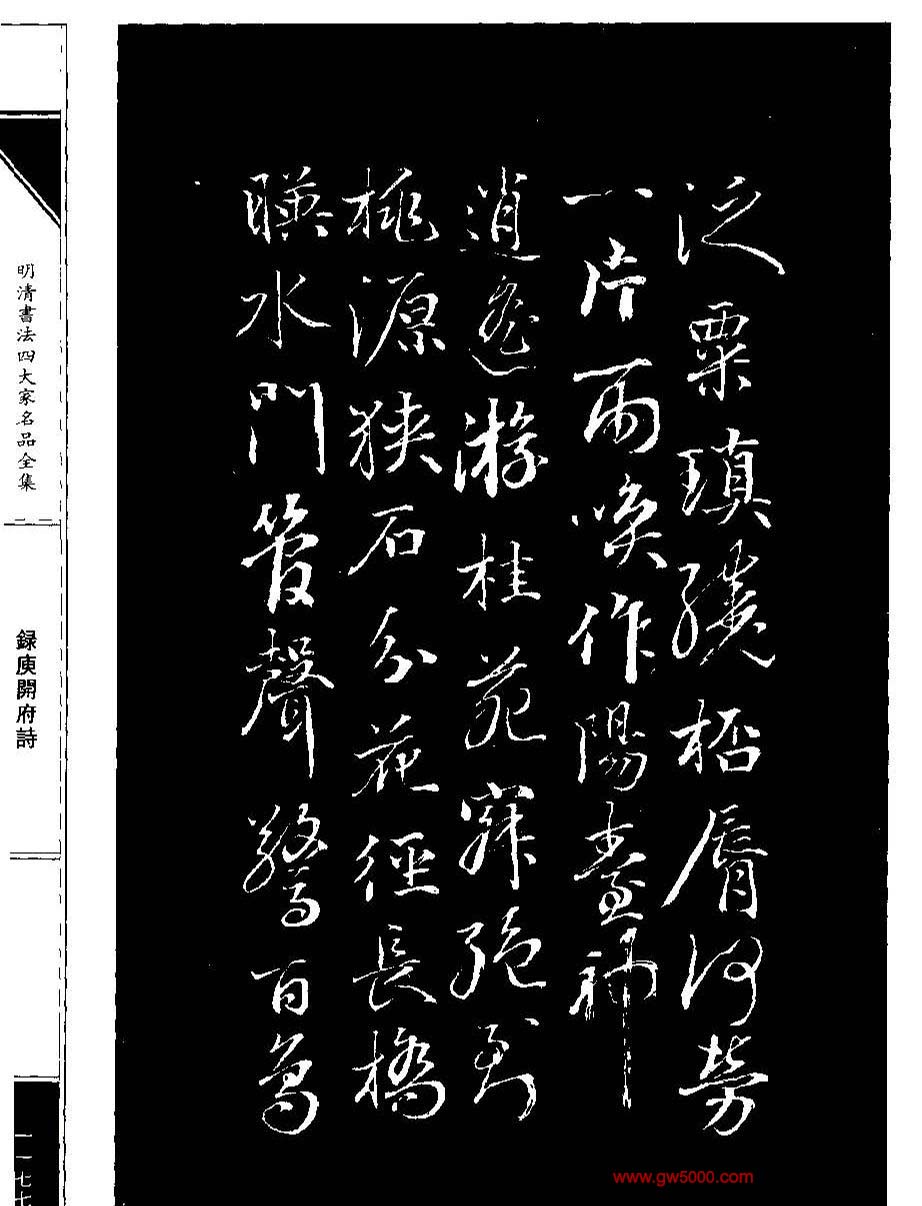 泛粟瑱繞桮脣何勞
一片雨喚作陽臺神
逍遙游桂苑寂絕到
桃源狹石分花徑長橋
暎水門管聲驚百鳥
明清書法四大家名品全集
録庾開府詩
一一七七
www.gw5000.com